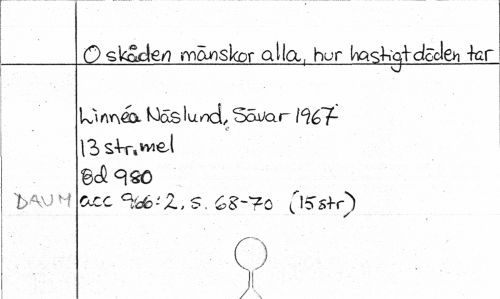 O skåden mänskor alla, hur hastigt döden tar
Linnéa Näslund, Sävar 1967
13 str, mel
Bd 980
DAUM acc 966:2, s. 68-70 (15 str)